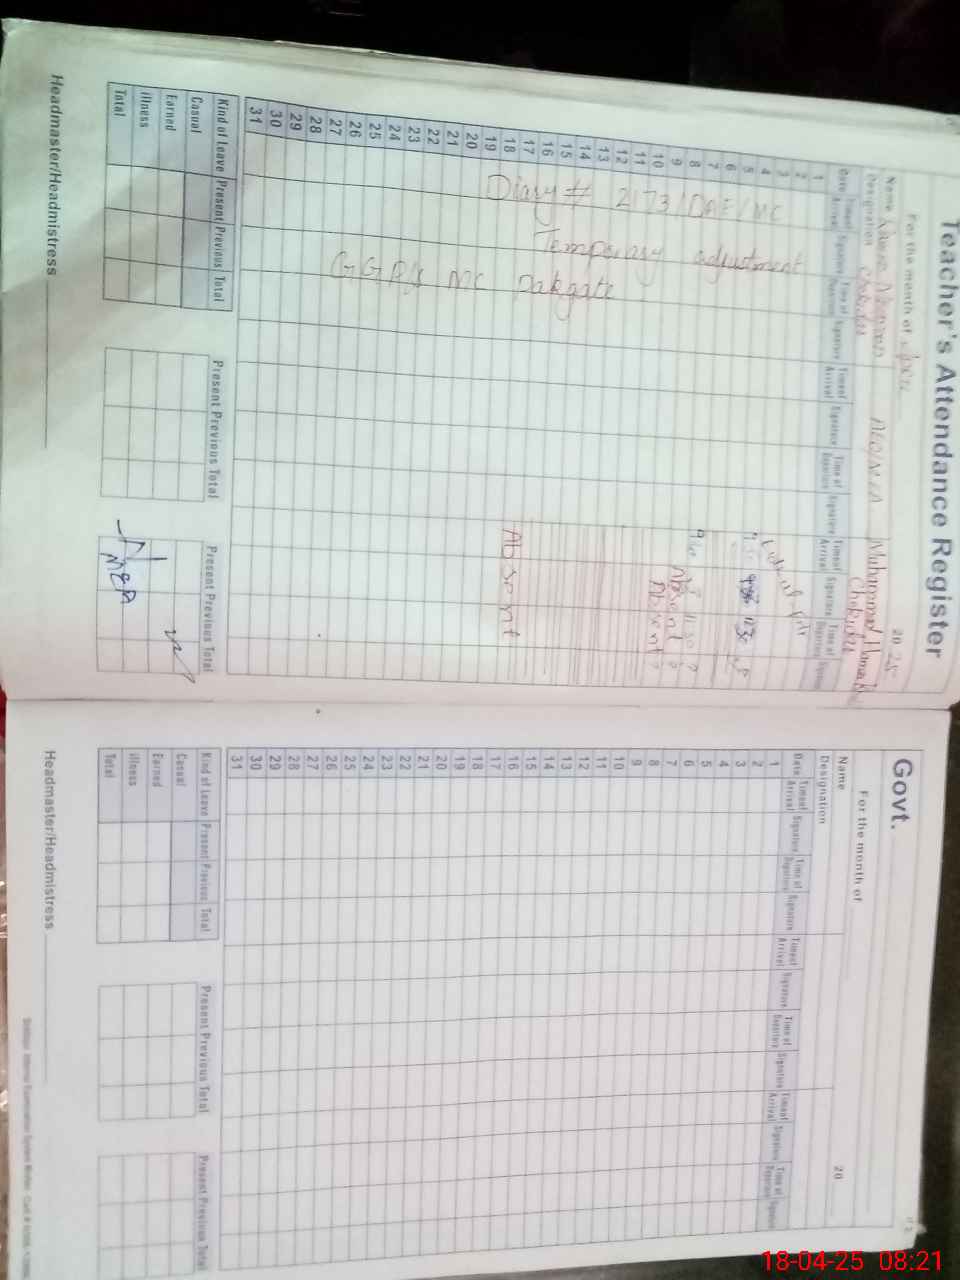 Teacher's Attendance Register
For the month of 20 25
Name Muhammad
Designation Chokidar Chokidar
Date Time of Arrival Signature Time of Departure Signature Time of Arrival Signature Time of Departure Signature Time of Arrival Signature Time of Departure Signature
1
2
3
4
5 1230
6
7
8
9 Absent
10 Absent
11
12
13
14
15
16
17
18 Absent
19
20
21
22
23
24
25
26
27
28
29
30
31
Diary # 2173/DAE/MC
Temporary adjustment
MC Dakgate
Kind of Leave Present Previous Total Present Previous Total Present Previous Total
Casual
Earned
illness
Total
Headmaster/Headmistress
Govt.
For the month of
Name 20
Designation
Date Time of Arrival Signature Time of Departure Signature Time of Arrival Signature Time of Departure Signature Time of Arrival Signature Time of Departure Signature
1
2
3
4
5
6
7
8
9
10
11
12
13
14
15
16
17
18
19
20
21
22
23
24
25
26
27
28
29
30
31
Kind of Leave Present Previous Total Present Previous Total Present Previous Total
Casual
Earned
illness
Total
Headmaster/Headmistress
18-04-25 08:21